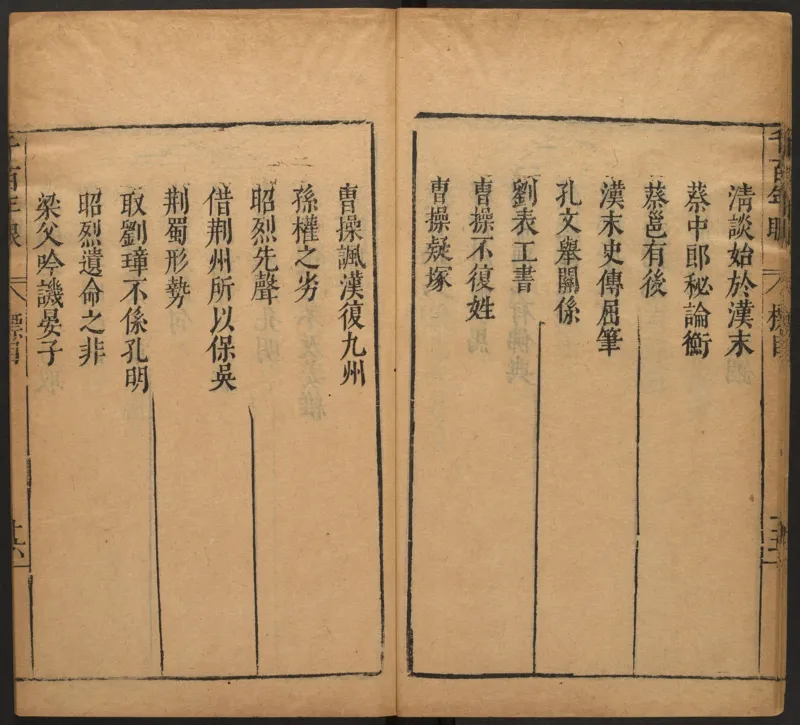 清談始於漢末
蔡中郎秘論衡
蔡邕有後
漢末史傳屈筆
孔文舉關係
劉表工書
曹操不復姓
曹操疑塚
曹操諷漢復九州
孫權之劣
昭烈先聲
借荆州所以保吳
荆蜀形勢
取劉璋不係孔明
昭烈遺命之非
梁父吟譏晏子